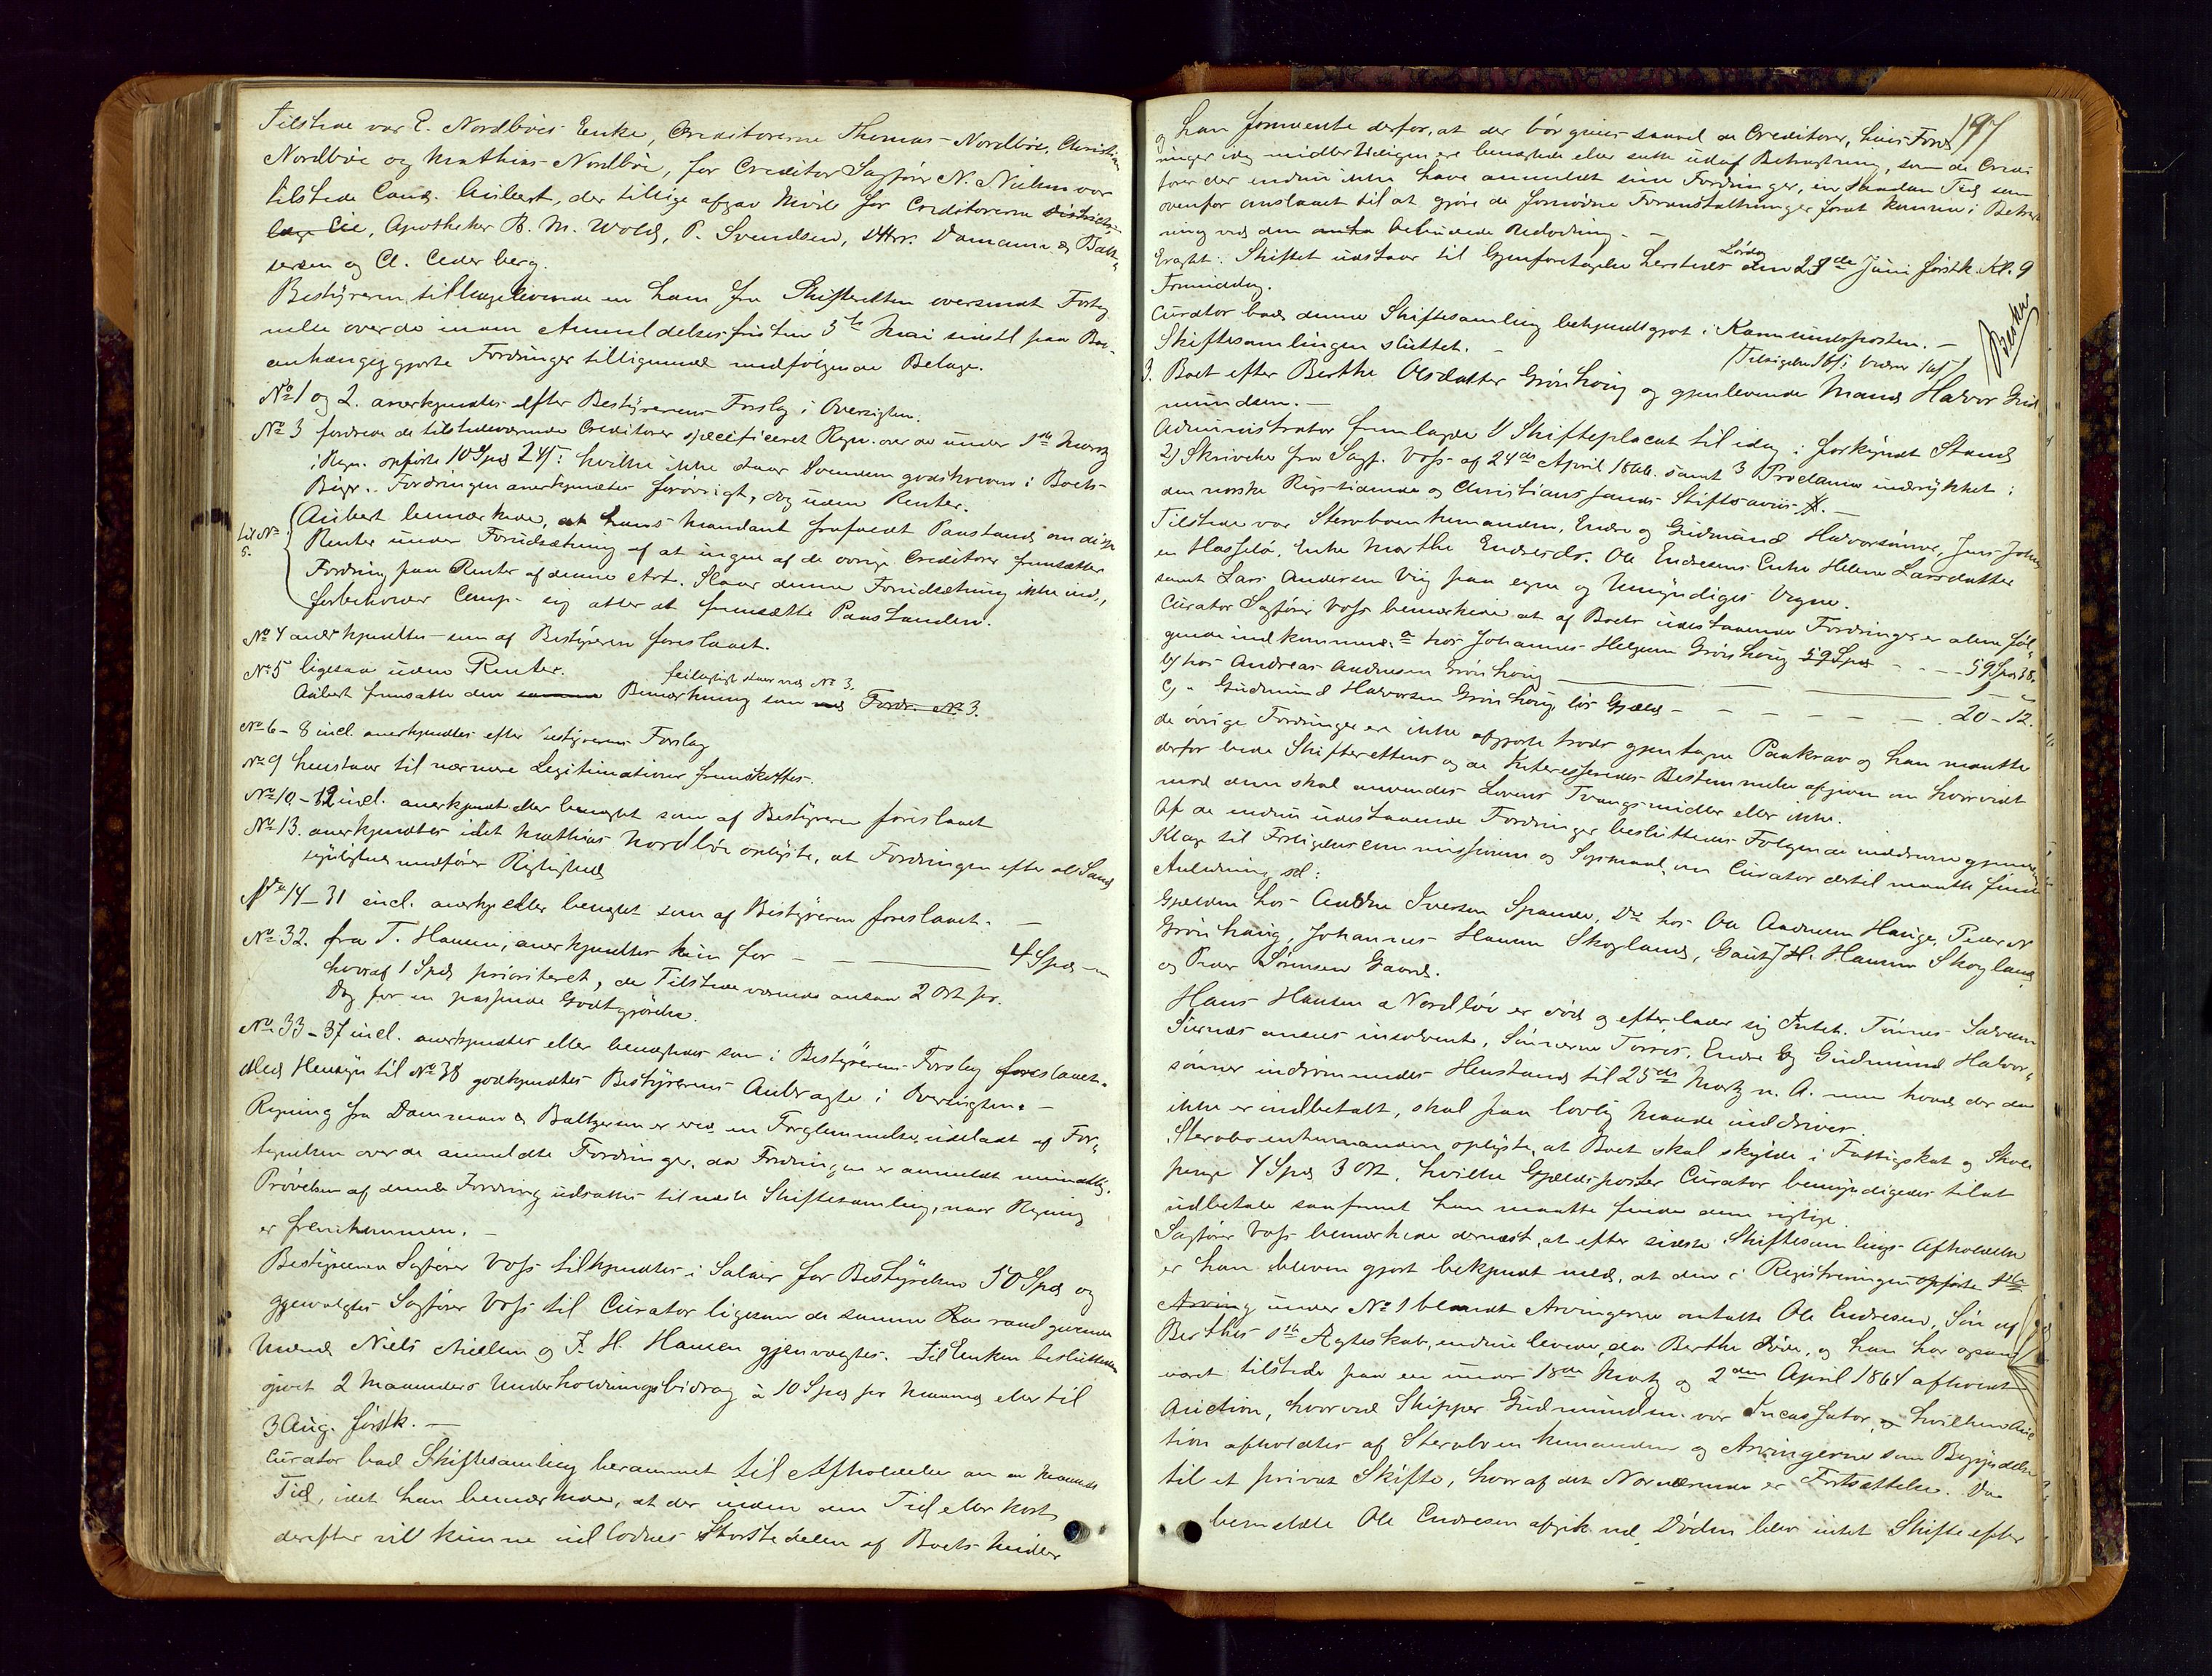 Tilstede var E. Nordböes Enke, Creditorerne Thomas Nordböe, Christian
Nordböe og Mathias Nordböe, for Creditor Sagförer N. Nielsen var
tilstede Cand. Aubert, der tillige afgav Möde for Creditorerne Districts-
læge Eie, Apotheker B. M. Wold, P. Svendsen, DHrr. Damman & Balt-
sersen og Cl. Cederberg.
Bestyreren tillagde en ham fra Skifteretten oversendt Forteg
nelse over de inden Anmeldelsesfristen 5te Mai sidstl paa Boet
anhængiggjorte Fordringer tilligemed medfölgende Belage.
No 1 og 2. anerkjendtes efter Bestyrerens Forslag i Oversigten.
No 3 fordrede de tilstedeværende Creditorer specificeret Regn. over de under 1ste Martz
i Regn. opförte 10 Spd 24 s: hvilke ikke staar Svendsen godskreven i Boets
Böger. Fordringen anerkjendtes forövrigt, dog uden Renter.
til No 5.
Aubert bemærkede, at hans Mandant frafaldt Paastand om disse
Renter under Forudsætning af at ingen af de övrige Creditorer fremsætter
Fordring paa Renter af denne Art. Slaar denne Forudsætning ikke ind,
forbeholder Comp. sig atter at fremsætte Paastanden.
No 4 anerkjendtes som af Bestyreren foreslaaet.
No 5 ligesaa uden Renter.
feilagtigt staar ved No 3.
Aubert fremsatte den samme Bemærkning som ved Fordr. No 3.
No 6 - 8 incl. anerkjendtes efter Bestyrerens Forslag
No 9 henstaar til nærmere Legitimationer fremskaffes.
No 10 - 12 incl. anerkjendt eller benegtet som af Bestyreren foreslaaet
No 13. anerkjendtes idet Mathias Nordböe oplyste, at Fordringen efter al Sand
synlighed medförer Rigtighed
No 14 - 31 incl. anerkj eller benegtet som af Bestyreren foreslaaet. —
No 32. fra T. Hansen, anerkjendtes kun for - - — 4 Spd -
hvoraf 1 Spd prioriteret, de Tilstedeværende ansaa 2 Ort pr.
Dag for en passende Godtgjörelse.
No 33 - 37 incl. anerkjendtes eller benegtedes som i Bestyrerens Forslag foreslaaet.
Med Hensyn til No 38 godkjendtes Bestyrerens Anbragte i Oversigten. —
Regning fra Damman & Baltzersen er ved en Forglemmelse udeladt af For-
tegnelsen over de anmeldte Fordringer, da Fordringen er anmeldt mundtlig.
Prövelsen af denne Fordring udsattes til næste Skiftesamling, naar Regning
er fremkommen. —
Bestyreren Sagförer Voss tilkjendtes i Salair for Bestyrelsen 50 Spd og
gjenvalgtes Sagförer Voss til Curator ligesom de samme Raadgivende
Mænd Niels Nielsen og J. H. Hansen gjenvalgtes. Til Enken besluttedes
givet 2 Maaneders Underholdningsbidrag à 10 Spd pr Maaned eller til
3 Aug. förstk. —
Curator bad Skiftesamling berammet til Afholdelse om en Maaneds
Tid, idet han bemærkede, at der inden den Tid eller kort
derefter vil kunne udloddes Störstedelen af Boets Midler
197
og han formeente derfor, at der bör gives saavel de Creditorer, hvis Ford
ringer idag midlertidigen ere benegtede eller satte udaf Betragtning, som de Credi
torer der endnu ikke have anmeldt sine Fordringer, en saadan Tid som
ovenfor anslaaet til at gjöre de fornödne Foranstaltninger forat komme i Betragt
ning ved den antu bebudede Udlodning. —
Eragtet: Skiftet udstaar til Gjenforetagelse hersteds Lördag den 29de Juni förstk. Kl. 9
Formiddag.
Curator bad denne Skiftesamling bekjendtgjort i Karmsundsposten. —
Skiftesamlingen sluttet. —
3. Boet efter Berthe Olsdatter Grönhoug og gjenlevende Mand Halvor Gud
mundsen. —
Administrator fremlagde 1/ Skifteplacat til idag i forkyndt Stand
2) Skrivelse fra Sagf. Voss af 24de April 1866. samt 3 Proclama indrykket i
den norske Rigstidende og Christianssands Stiftsavis. —
Tilstede var Sterboenkemanden, Endre og Gudmund Halvorsönner, Jens Johns
en Hasselö, Enke Marthe Endresdr. Ole Endresens Enke Helene Larsdatter
samt Lars Andersen Viig paa egne og Umyndiges Vegne.
Curator Sagförer Voss bemærkede at af Boets udestaaende Fordringer er alene föl-
gende indkommet. a hos Johannes Helgesen Grönhoug 59 Spd - - - 59 Spd 38.
b) hos Andreas Andersen Grönhoug — — — 5 —
c) " Gudmund Halvorsen Grönhoug lös Gjæld - - - - - 20 - 12.
de övrige Fordringer er ikke afgjorte trods gjentagne Paakrav og han maatte
derfor bede Skifterettens og de Interesseredes Bestemmelse afgiven om hvorvidt
mod dem skal anvendes Lovens Tvangsmidler eller ikke.
Af de endnu udestaaende Fordringer besluttedes Fölgende inddrevne gjennem
Klage til Forligelsescommissionen og Sögsmaal, om Curator dertil maatte finde
Anledning, sel:
Gjælden hos Andrea Iversen Spanne, Do hos Ole Andersen Hauge, Peder N
Grönhaug, Johannes Hansen Skogland, Gaut J H. Hansen Skogland
og Peder Sörensen Gaard.
Hans Hansen a Nordböe er död og efterlader sig Intet. Tönnes Salvesen
Suenæs ansees insolvente, Sönnerne Torres, Endre og Gudmund Halvor-
sönner indrömmedes Henstand til 25de Martz n. A. men hvad der da
ikke er indbetalt, skal paa lovlig Maade inddrives.
Sterboenkemanden oplyste, at Boet skal skylde i Fattigskat og Skole
penge 4 Spd 3 Ort, hvilke Gjældsposter Curator bemyndigedes til at
udbetale saafremt han maatte finde dem rigtige.
Sagförer Voss bemærkede dernæst, at efter sidste Skiftesamlings Afholdelse
er han bleven gjort bekjendt med, at den i Registreringen opförte
Arving under No 1 blandt Arvingerne omtalte Ole Endresen, Sön af
Berthes 1ste Ægteskab, endnu levede, da Berthe döde, og han har ogsaa
været tilstede paa en under 18de Martz og 2den April 1864 afholdt
Auction, hvorved Skipper Gudmundsen var Incassator, og hvilken Auc
tion afholdtes af Sterboenkemanden og Arvingerne som Begyndelse
til et privat Skifte, hvoraf det Nærværende er Fortsættelse. Da
bemeldte Ole Endresen afgik ved Döden blev intet Skifte efter